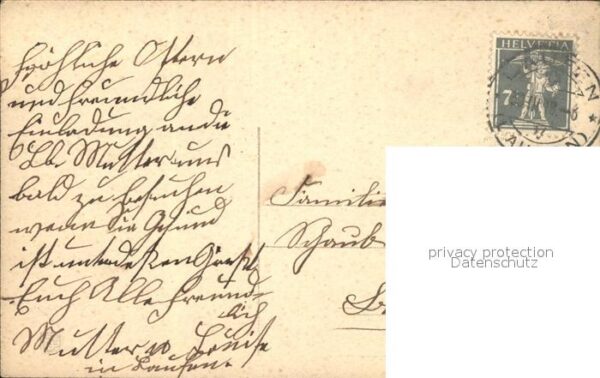 Fröhliche Ostern
und freundliche
Einladung an die
Lb. Mutter uns
bald zu besuchen
wenn Sie Gesund
ist unterdessen Grüsst
Euch Alle freund-
lich
Mutter u Louise
in Laufen.
HELVETIA
7½
Familie
Schaub
privacy protection
Datenschutz